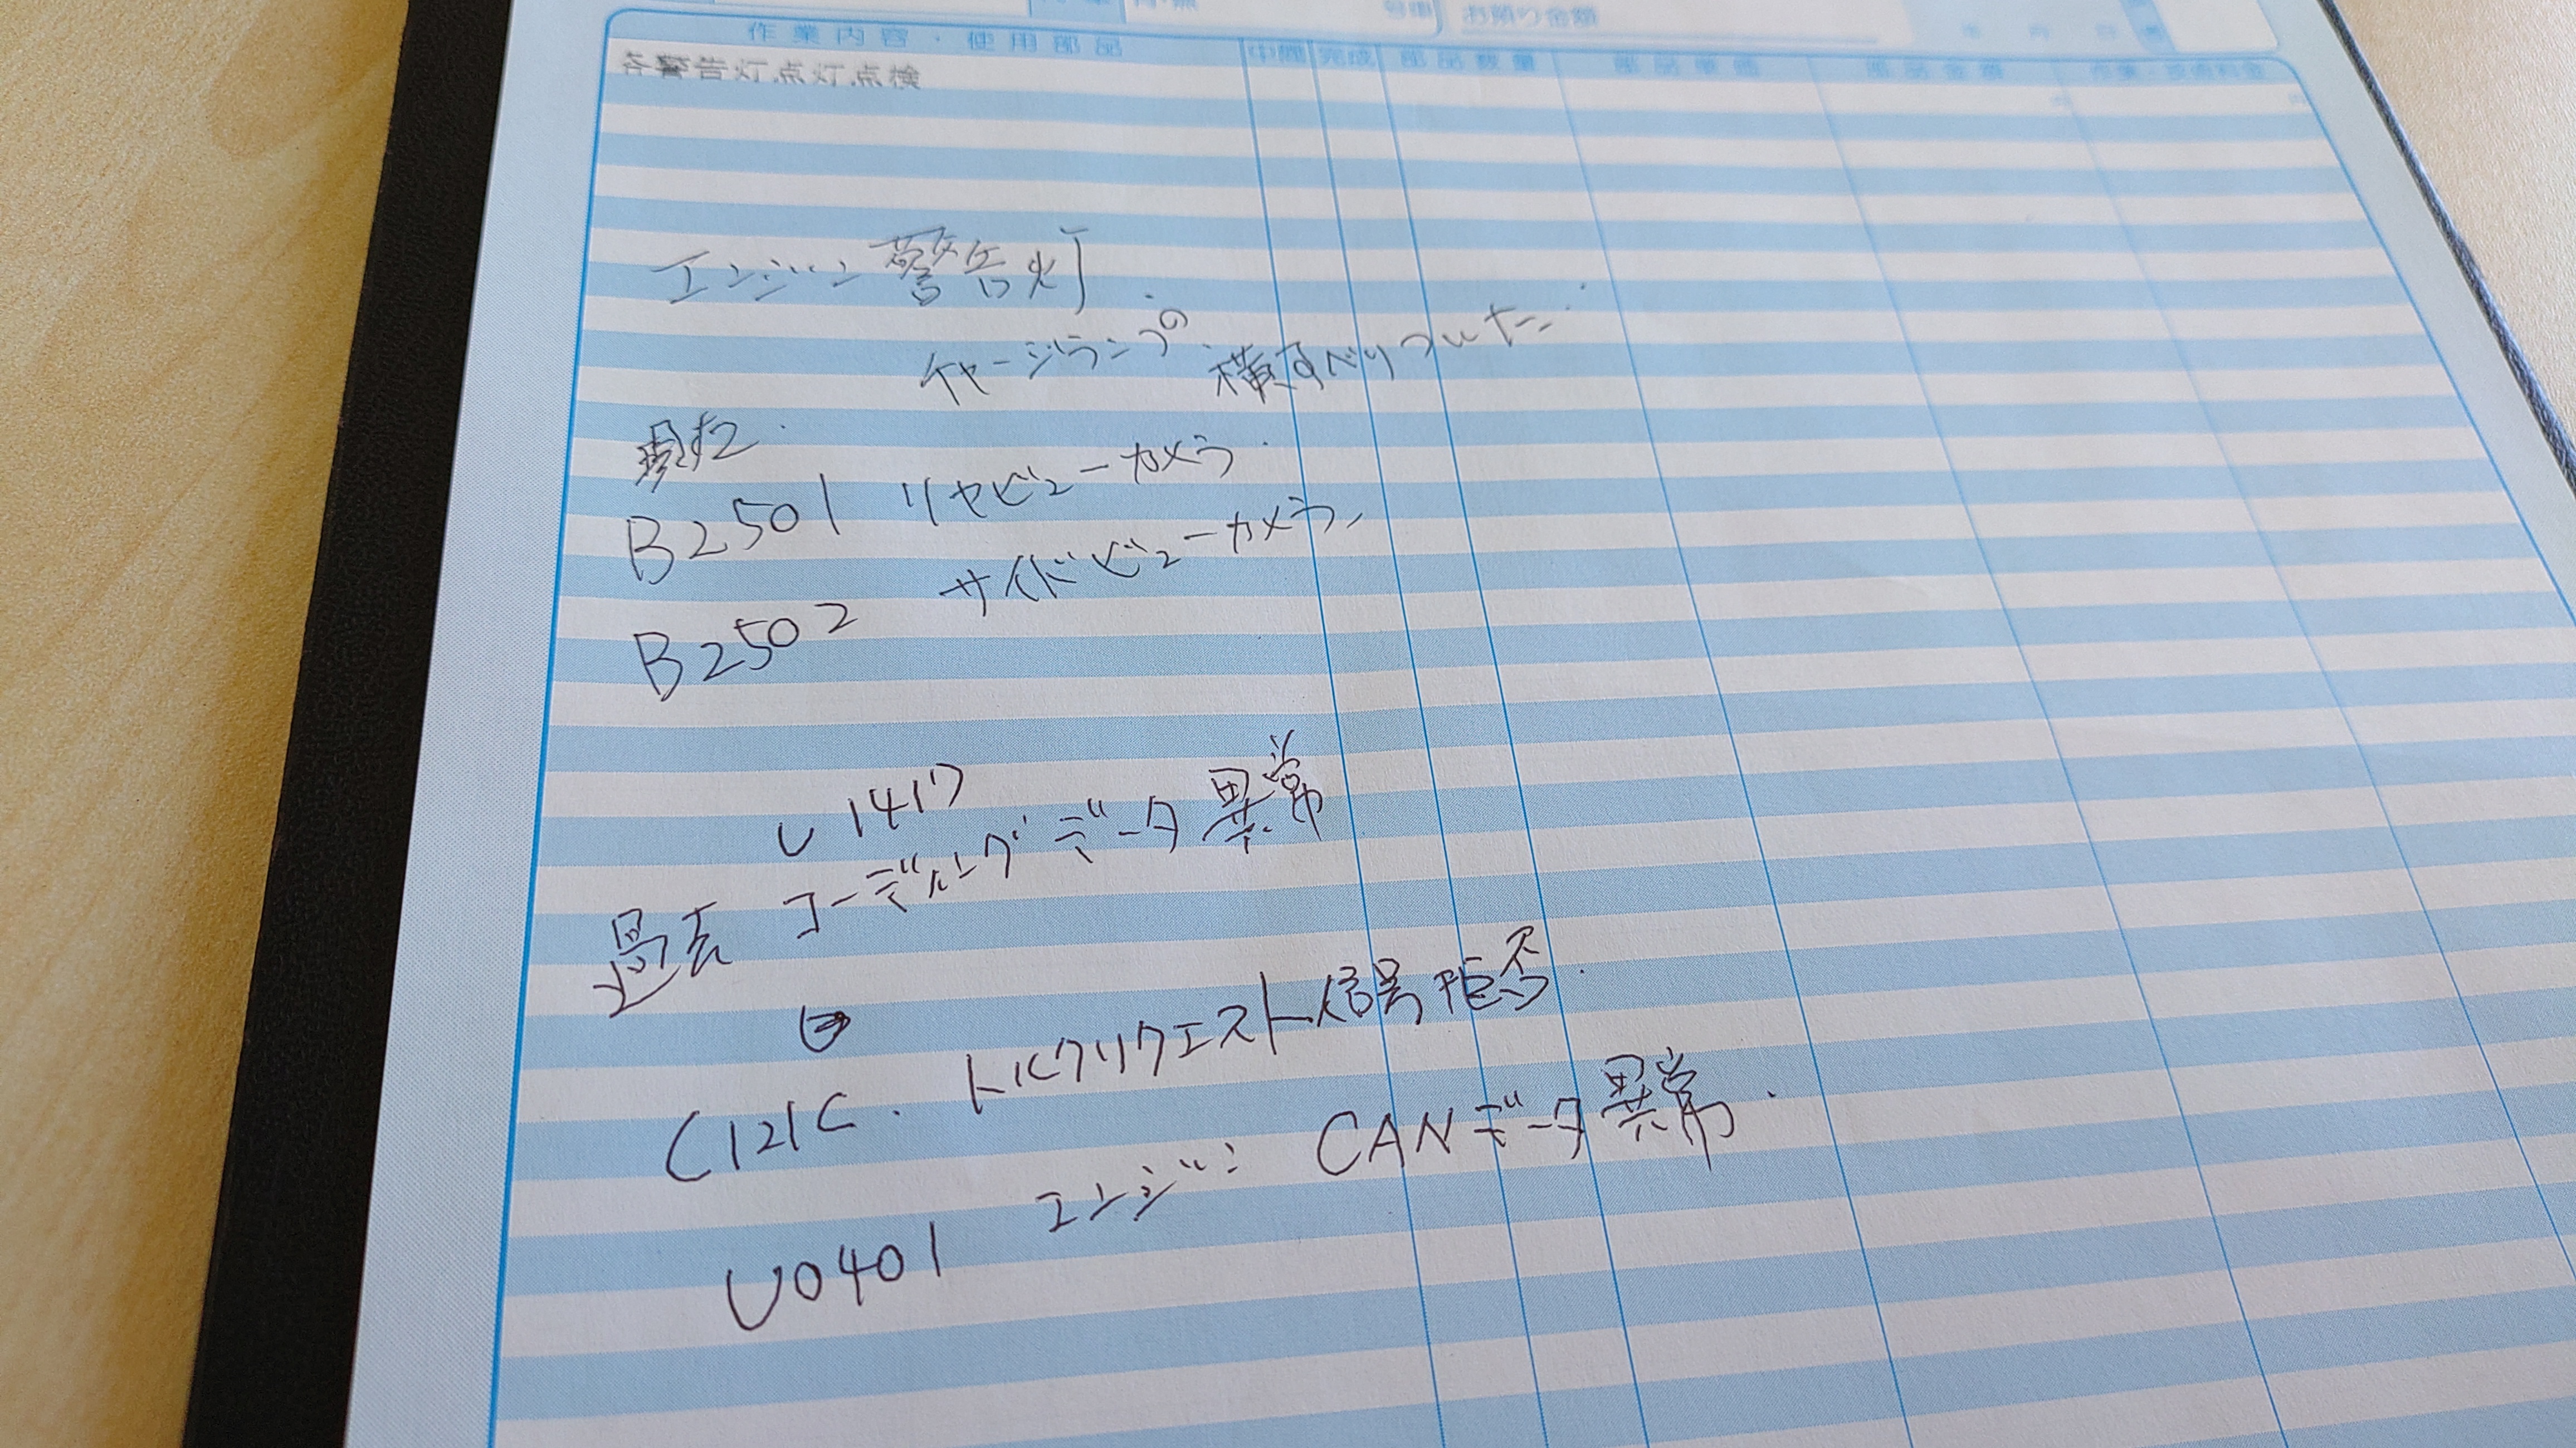 お預り金額
作業内容・使用部品 中間 完成 部品数量 部品単価 部品金額
各警告灯点灯点検
エンジン警告灯
チャージランプの横すべりついた
現在
B2501 リヤビューカメラ
B2502 サイドビューカメラ
U1417
過去 コーディングデータ異常
C121C. トルクリクエスト信号拒否.
U0401 エンジン CANデータ異常.